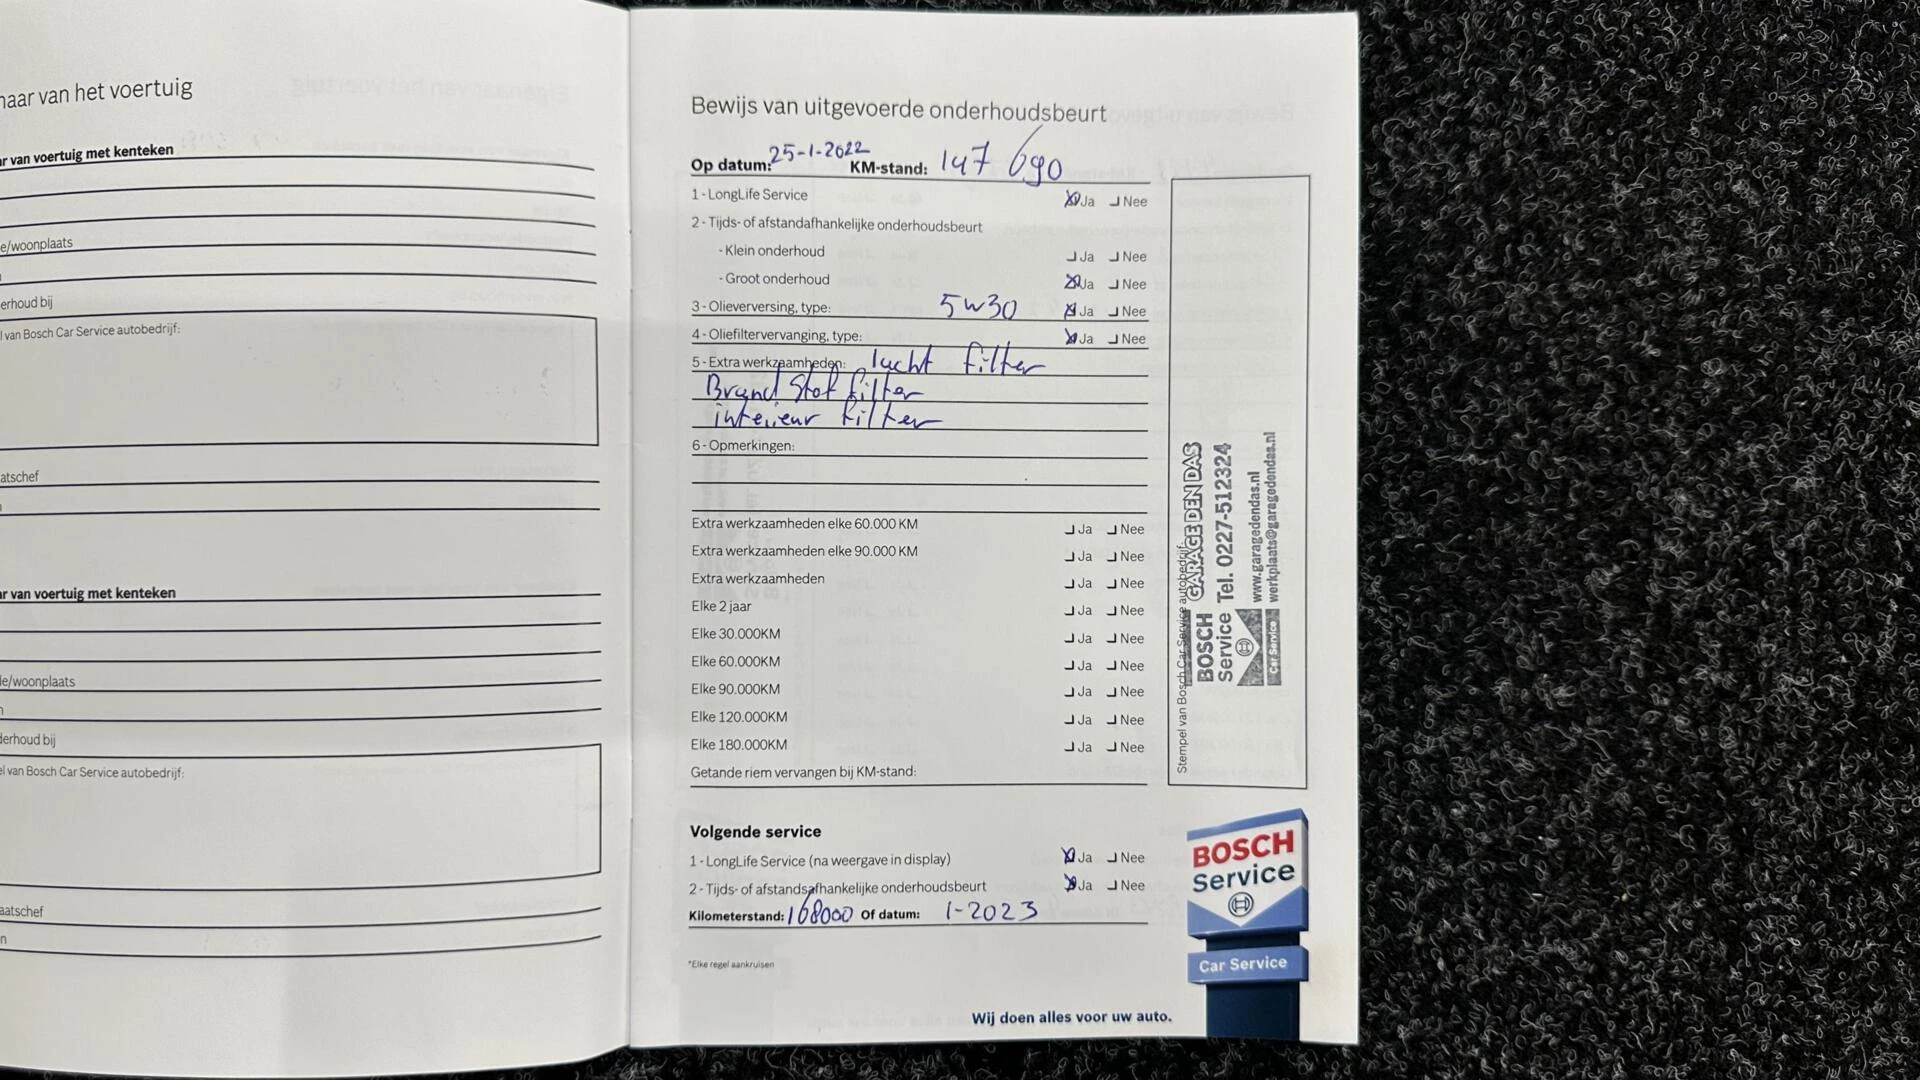 naar van het voertuig
ar van voertuig met kenteken
e/woonplaats
erhoud bij
l van Bosch Car Service autobedrijf:
atschef
ar van voertuig met kenteken
e/woonplaats
erhoud bij
el van Bosch Car Service autobedrijf:
aatschef
n
Bewijs van uitgevoerde onderhoudsbeurt
Op datum: 25-1-2022 KM-stand: 147 690
1 - LongLife Service Ja Nee
2 - Tijds- of afstandafhankelijke onderhoudsbeurt
- Klein onderhoud Ja Nee
- Groot onderhoud Ja Nee
3 - Olieverversing, type: 5w30 Ja Nee
4 - Oliefiltervervanging, type: Ja Nee
5 - Extra werkzaamheden: lucht filter
Brand Stof filter
interieur filter
6 - Opmerkingen:
Extra werkzaamheden elke 60.000 KM Ja Nee
Extra werkzaamheden elke 90.000 KM Ja Nee
Extra werkzaamheden Ja Nee
Elke 2 jaar Ja Nee
Elke 30.000KM Ja Nee
Elke 60.000KM Ja Nee
Elke 90.000KM Ja Nee
Elke 120.000KM Ja Nee
Elke 180.000KM Ja Nee
Getande riem vervangen bij KM-stand:
Stempel van Bosch Car Service autobedrijf:
BOSCH GARAGE DEN DAS
Service Tel. 0227-512324
www.garagedendas.nl
Car Service werkplaats@garagedendas.nl
Volgende service
1 - LongLife Service (na weergave in display) Ja Nee
2 - Tijds- of afstandsafhankelijke onderhoudsbeurt Ja Nee
Kilometerstand: 168000 Of datum: 1-2023
*Elke regel aankruisen
BOSCH
Service
Car Service
Wij doen alles voor uw auto.